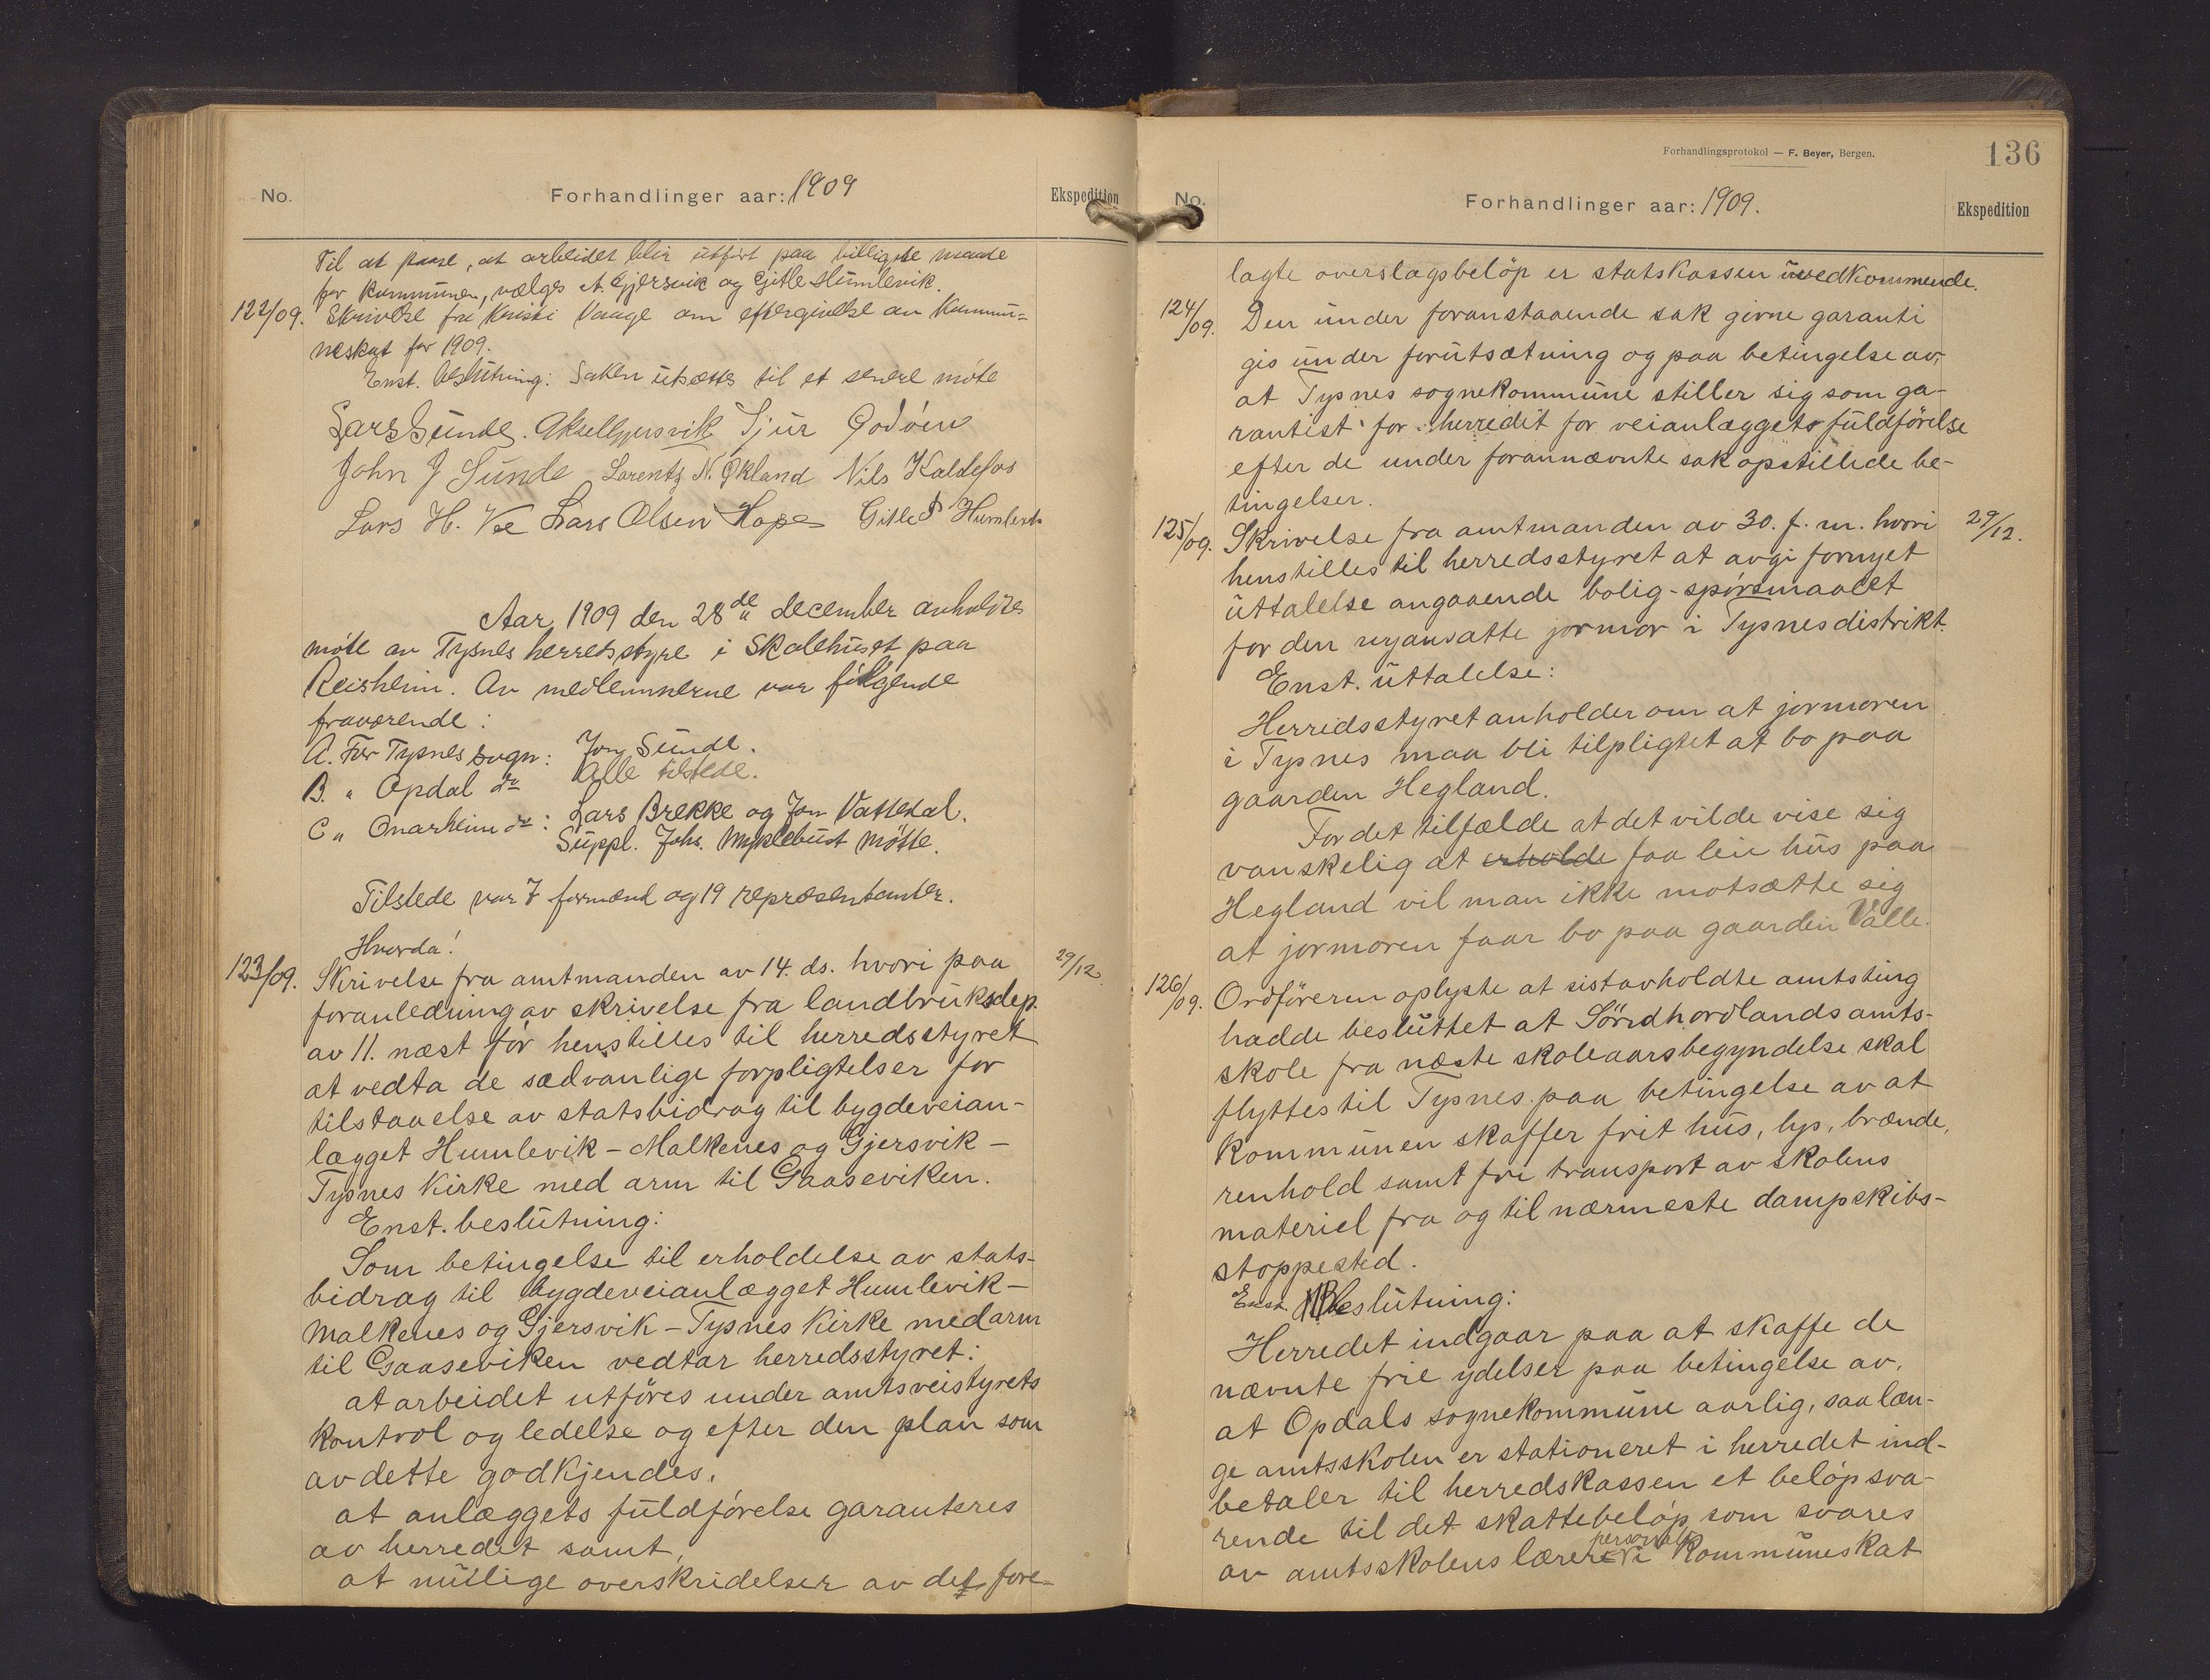 No.
Forhandlinger aar: 1909
Ekspedition
Til at paase, at arbeidet blir utført paa billigste maate
for kommunen, vælges A. Gjersvik og Gitle Humlevik.
122/09. Skrivelse fra Kristi Vaage om eftergivelse av kommu-
neskat for 1909.
Enst. beslutning: Saken utsættes til et senere møte
Lars Sunde. Aksel Gjersvik Sjur Godöen
John J Sunde Lorentz N. Økland Nils Kaldefos
Lars H. Vee Lars Olsen Hope Gitle Humlevik
Aar 1909 den 28de december avholdtes
møte av Tysnes herredsstyre i Skolehuset paa
Reisheim. Av medlemmerne var følgende
fraværende:
A. For Tysnes sogn: Jon Sunde.
B. " Opdal do Alle tilstede.
C " Onarheim do: Lars Brekke og Jon Vattedal.
Suppl. Johs. Myklebust møtte.
Tilstede var 7 formænd og 19 repræsentanter.
Hvorda!
123/09. Skrivelse fra amtmanden av 14. ds. hvori paa
29/12.
foranledning av skrivelse fra landbruksdep.
av 11. næst før henstilles til herredsstyret
at vedta de sædvanlige forpligtelser for
tilstaaelse av statsbidrag til bygdeveian-
lægget Humlevik - Malkenes og Gjersvik -
Tysnes Kirke med arm til Gaaseviken.
Enst. beslutning:
Som betingelse til erholdelse av stats-
bidrag til bygdeveianlægget Humlevik -
Malkenes og Gjersvik - Tysnes Kirke med arm
til Gaaseviken vedtar herredsstyret:
at arbeidet utføres under amtsveistyrets
kontrol og ledelse og efter den plan som
av dette godkjendes,
at anlæggets fuldførelse garanteres
av herredet samt,
at mulige overskridelser av det fore-
Forhandlingsprotokol — F. Beyer, Bergen.
136
No.
Forhandlinger aar: 1909.
Ekspedition
lagte overslagsbeløp er statskassen uvedkommende.
124/09. Den under foranstaaende sak givne garanti
gis under forutsætning og paa betingelse av,
at Tysnes sognekommune stiller sig som ga-
rantist for herredet for veianlæggets fuldførelse
efter de under forannævnte sak opstillede be-
tingelser.
125/09. Skrivelse fra amtmanden av 30. f. m. hvori
29/12.
henstilles til herredsstyret at avgi fornyet
uttalelse angaaende bolig-spørsmaalet
for den nyansatte jormor i Tysnes distrikt.
Enst. uttalelse:
Herredsstyret anholder om at jormoren
i Tysnes maa bli tilpligtet at bo paa
gaarden Hegland.
For det tilfælde at det vilde vise sig
vanskelig at erholde faa leie hus paa
Hegland vil man ikke motsætte sig
at jormoren faar bo paa gaarden Valle.
126/09. Ordføreren oplyste at sistavholdte amtsting
hadde besluttet at Söndhordlands amts-
skole fra næste skoleaars begyndelse skal
flyttes til Tysnes paa betingelse av at
kommunen skaffer frit hus, lys, brænde,
renhold samt fri transport av skolens
materiel fra og til nærmeste dampskibs-
stoppested.
Enst. Beslutning:
Herredet indgaar paa at skaffe de
nævnte frie ydelser paa betingelse av,
at Opdals sognekommune aarlig, saa læn-
ge amtsskolen er stationeret i herredet ind-
betaler til herredskassen et beløp sva-
rende til det skattebeløp som svares
av amtsskolens lærerpersonale i kommuneskat